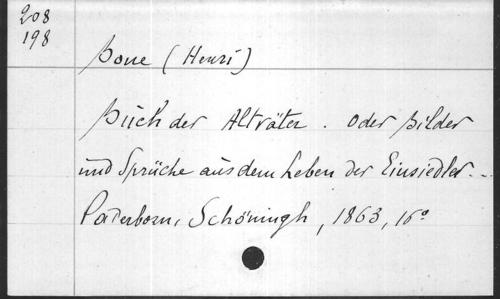 208
198
Bone (Henri)
Buch der Altväter. Oder Bilder
und Sprüche aus dem Leben der Einsiedler...
Paderborn, Schöningh, 1863, 16°